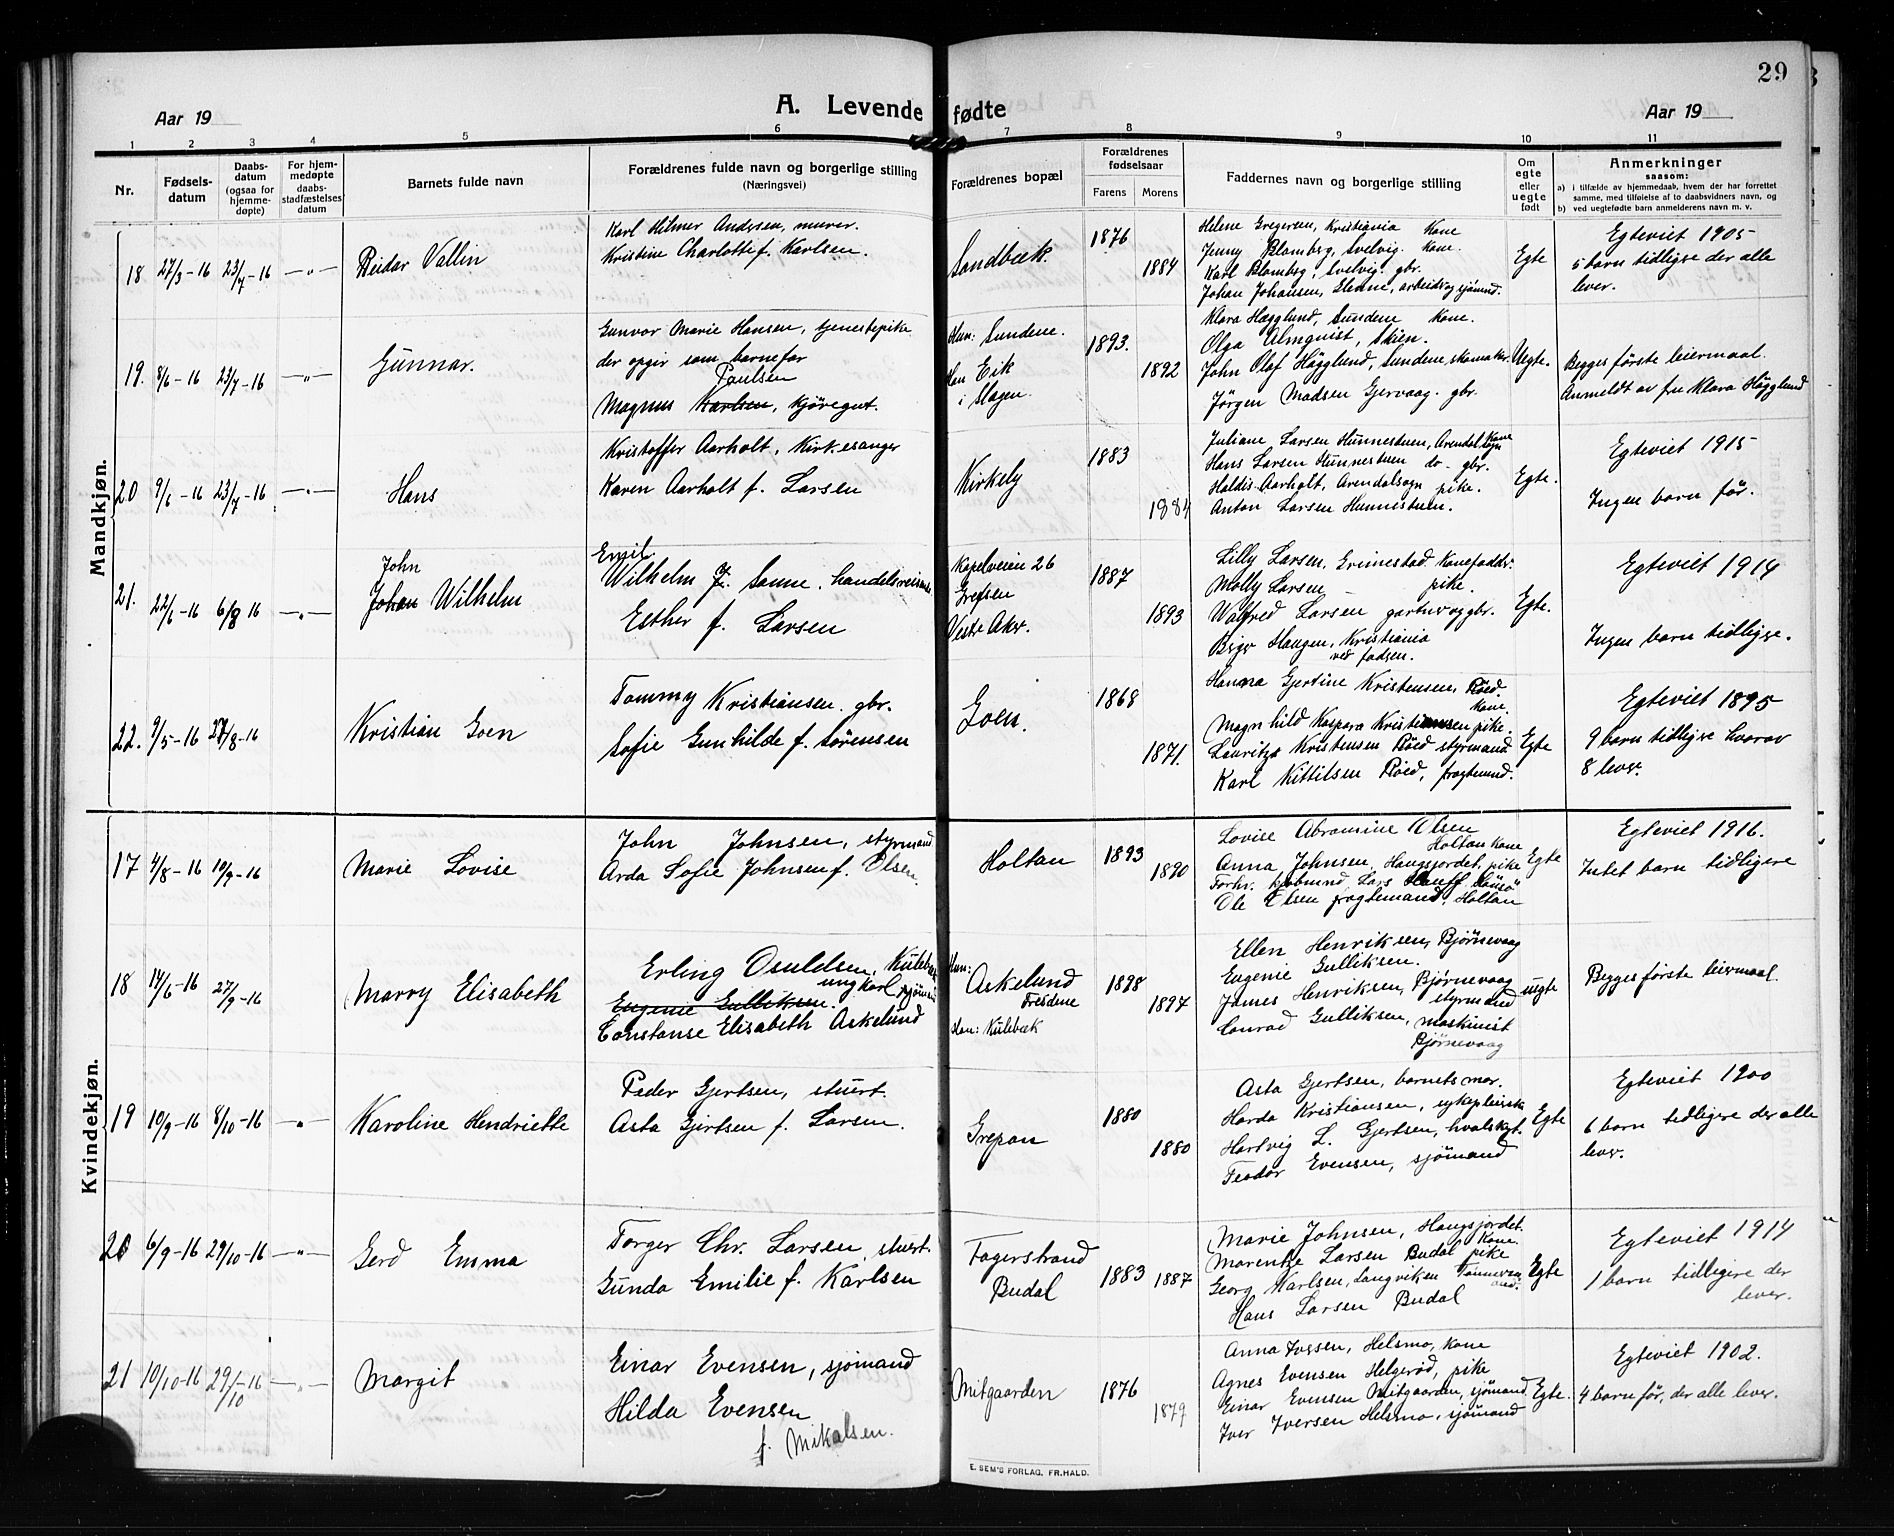 29
Aar 19
A. Levende fødte
Aar 19
1 2 3 4 5 6 7 8 9 10 11
Nr.
Fødsels-
datum
Daabs-
datum
(ogsaa for
hjemme-
døpte)
For hjem-
medøpte
daabs-
stadfæstelses
datum
Barnets fulde navn
Forældrenes fulde navn og borgerlige stilling
(Næringsvei)
Forældrenes bopæl
Forældrenes
fødselsaar
Farens
Morens
Faddernes navn og borgerlige stilling
Om
egte
eller
uegte
født
Anmerkninger
saasom:
a) i tilfælde av hjemmedaab, hvem der har forrettet
samme, med tilføielse af to daabsvidners navn, og
b) ved uegtefødte barn anmelderens navn m. v.
Mandkjøn.
18 27/3-16 23/7-16 —"—
Reidar Vallin
Karl Hilmer Andersen, murer.
Kristine Charlotte f. Karlsen.
Sandbæk.
1876
1884
Helene Gregersen, Kristiania Kone
Jenny Blombsg, Svelvig. Kone.
Karl Blombsg, Svelvig. gbr.
Johan Johansen, arbeidsog sjømnd.
Egte
Egteviet 1905
5 barn tidligse der alle
lever.
19. 8/6-16 23/7-16 —"—
Gunnar.
Gunvor Marie Hansen, tjenestepike
der opgir som barnefar
Paulsen
Magnus Karlsen, kjøregut.
Hun: Sundene.
Han Eik
i Slagen.
1893.
1892
Klara Hägglund, Sundene Kone.
Olga Almquist, Skien.
John Olaf Hägglund, Sundene, skomaker.
Jörgen Madsen Gjervaag. gbr.
Uegte.
Begges første leiermaal.
Anmeldt av fru Klara Hägglund
20 9/6-16 23/7-16 —"—
Hans
Kristoffer Aarholt, Kirkesanger
Karen Aarholt f. Larsen
Kirkely
1883
1884
Juliane Larsen Hunnestuen, Arendal Kone
Hans Larsen Hunnestuen do- gbr.
Haldis Aarholt, Arendalsogn pike.
Anton Larsen Hunnestuen.
Egte.
Egteviet 1915
Ingen barn før.
21. 22/6-16 6/8 16 —"—
John
Johan Wilhelm
Emil
Wilhelm J. Sanne, handelsreisende
Esther f. Larsen
Kapelveien 26
Grefsen
Vestre Aker.
1887
1893
Lilly Larsen, Grimestad. Konefadder.
Molly Larsen — pike.
Walfred Larsen gartner og gbr.
Birger Haugen, Kristiania
ved fadsen.
Egte.
Egteviet 1914
Ingen barn tidligse.
22. 9/5-16 27/8-16
Kristian Goen
Tommy Kristiansen gbr.
Sofie Gunhilde f. Sørensen
Goen.
1868
1871.
Hanna Gjertine Kristensen, Röed.
Kone.
Magnhild Kaspara Kristiansen pike.
Lauritz Kristensen Röed styrmand
Karl Kittilsen Röed, fragtemand.
Egte
Egteviet 1895
9 barn tidligse hvorav
8 lever.
Kvindekjøn.
17 4/8-16 10/9-16
Marie Lovise
John Johnsen, styrmand
Arda Sofie Johnsen f. Olsen.
Holtan
1893
1890
Lovise Abramine Olsen
Holtan Kone
Anna Johnsen, Haugsjordet, pike
Forhv. kjøbmand Lars Hauff
Ole Olsen fragtemand, Holtan
Egte
Egteviet 1916.
Intet barn tidligere
18 14/6-16 27/9-16
Marry Elisabeth
Erling Osuldsen, Kulebæk
ungkarl, sjømand
Eugenie Gulliksen.
Constanse Elisabeth Askelund
Hun:
Askelund
Tresdene
Han: Kulebæk
1898
1897
Ellen Henriksen, Bjørnevaag
Eugenie Gulliksen.
James Henriksen, Bjørnevaag
styrmand
Conrad Gulliksen, maskinist
Bjørnevaag
uegte
Begges første leiermaal
19 10/9-16 8/10-16 "
Karoline Hendriette
Peder Gjertsen, stuert.
Asta Gjertsen f. Larsen.
Grepan
1880
1880
Asta Gjertsen, barnets mor.
Harda Kristiansen, sykepleierske
Hartvig L. Gjertsen, hvalskyt.
Teodor Evensen, sjömand
Egte
Egteviet 1900
6 barn tidligere der alle
lever.
20 6/9-16 29/10-16 —"—
Gerd Emma
Torger Chr. Larsen, stuert.
Gunda Emilie f. Karlsen
Fagerstrand
Budal
1883 1887
Marie Johnsen, Haugsjordet.
Kone.
Marentze Larsen Budal pike
Georg Karlsen, Langviken
Hans Larsen Budal
Egte
Egteviet 1914
1 barn tidligere der
lever.
21 10/10-16 29/10-16 —"—
Margit
Einar Evensen, sjömand
Hilda Evensen
f. Mikalsen.
Mitgaarden
1876
1879
Anna Iversen, Helsmo, kone
Agnes Evensen Helgerød, pike
Einar Evensen Mitgaarden, sjömand.
Iver Iversen Helsmo, sjömand
Egte.
Egteviet 1902.
4 barn før, der alle lever.
E. SEM'S FORLAG. FR.HALD.